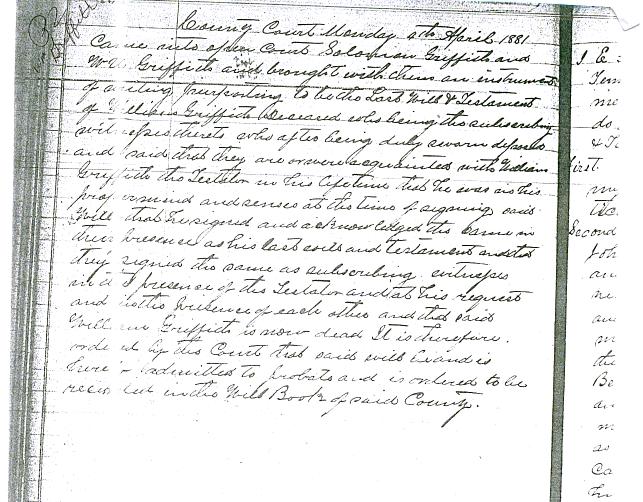 County Court Monday 4th April 1881
Came into open Court Solomon Griffith and
Griffith and brought with them an instrument
of writing purporting to be the Last Will & Testament
of William Griffith Deceased who being the subscribing
witnesses thereto who after being duly sworn deposes
and said that they are or were acquainted with William
Griffith the Testator in his lifetime that he was in his
proper mind and senses at the time of signing said
Will that he signed and acknowledged the same in
their presence as his last will and testament and that
they signed the same as subscribing witnesses
in the presence of the Testator and at his request
and in the presence of each other and that said
William Griffith is now dead It is therefore
ordered by the Court that said will be and is
hereby admitted to probate and is ordered to be
recorded in the Will Book of said County.
J. E.
Tem
me
do
& Te
first
m
tic
Second
Joh
an
ne
an
m
the
Be
an
m
as
Ca